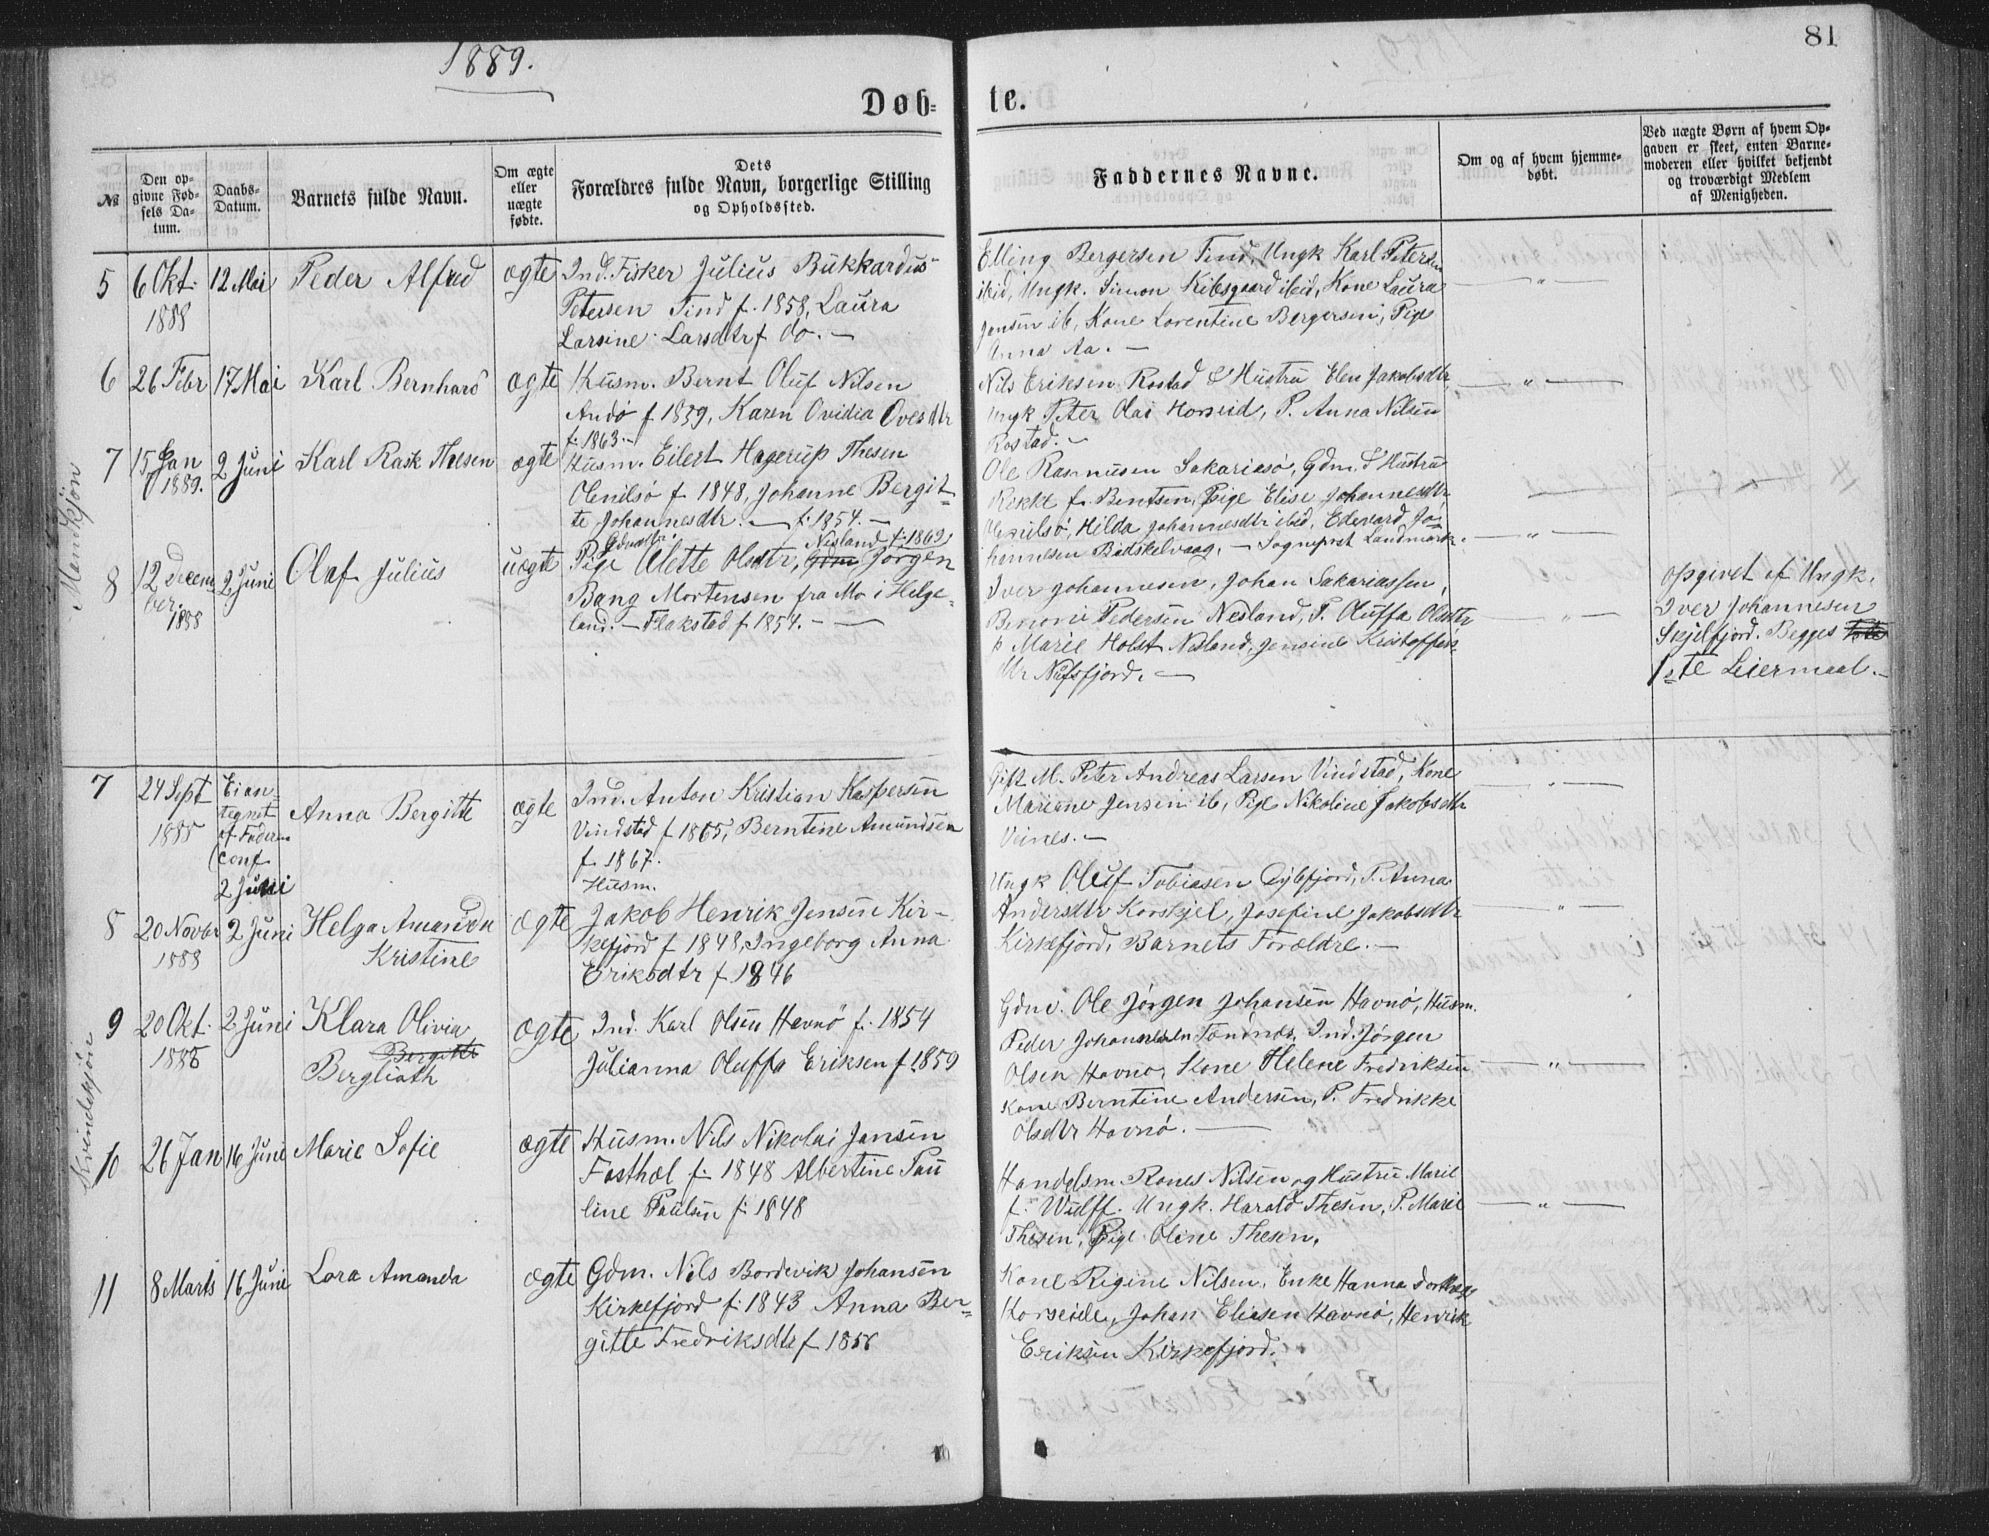 1889.
81
Døb-
te.
№
Den op-
givne Fød-
sels Da-
tum.
Daabs-
Datum.
Barnets fulde Navn.
Om ægte
eller
uægte
fødte.
Dets
Forældres fulde Navn, borgerlige Stilling
og Opholdssted.
Faddernes Navne.
Om og af hvem hjemme-
døbt.
Ved uægte Børn af hvem Op-
gaven er skeet, enten Barne-
moderen eller hvilket bekjendt
og troværdigt Medlem
af Menigheden.
Mandkjøn
5
6 Okt.
1888
12 Mai
Peder Alfred
ægte
Ind. Fisker Julius Bukkardus
Petersen Tind f. 1858, Laura
Larsine Larsdtr f do. —
Elling Bergersen Tind, Ungk Karl Petersen
ibid, Ungk. Simon Kibsgaard ibid, Kone Laura
Jensen ib, Kone Lorentine Bergersen, Pige
Anna Aa. —
— „ —
6
26 Febr
17 Mai
Karl Bernhard
ægte
Husm. Bernt Oluf Nilsen
Andø f 1839, Karen Ovidia Ovesdtr
f. 1863. —
Nils Eriksen Rostad & Hustru Elen Jakobsdtr,
Ungk Peter Olai Horseid, P. Anna Nilsen
Rostad. —
— „ —
7
15 Jan
1889.
2 Juni
Karl Rask Thesen
ægte
Husm. Eilert Hagerup Thesen
Olenilsø f 1848, Johanne Bergit-
te Johannesdtr. — f. 1854. —
Ole Rasmusen Sakariasø, Gdm. & Hustru
Rikke f. Bentsen, Pige Elise Johannesdtr,
Olenilsø, Hilda Johannesdtr ibid, Edevard Jo-
hannesen Bødskelvaag. — Sogneprst Landmark.
— „ —
8
12 Decem
ber.
1888
2 Juni
Olaf Julius
uægte
Gdmdtr.
Nesland f. 1869,
Pige Alette Olsdtr, Gdm Jørgen
Bang Mortensen fra Mo i Helge-
land. — Flakstad f 1854. — —
Iver Johannesen, Johan Sakariassen,
Benoni Pedersen Nesland, P. Oluffa Olsdtr
P. Marie Holst Nesland, Jensine Kristoffers
dtr Nufsfjord. —
— „ —
Opgivet af Ungk.
Iver Johannesen
Skjelfjord. Begges
1ste Leiermaal. —
Kvindekjøn
7
24 Sept
1885
Ei an-
tegnet
af Føderen
(conf
2 Juni
Anna Bergitte
ægte
Ind. Anton Kristian Kaspersen
Vindstad f 1865, Berntine Amundsen
f 1867.
Gift M. Peter Andreas Larsen Vindstad, Kone
Mariane Jensen ib, Pige Nikoline Jakobsdtr
Veines. —
— „ —
8
20 Novbr
1888
2 Juni
Helga Amanda
Kristine
ægte
Husm.
Jakob Henrik Jensen Kir-
kefjord f 1848, Ingeborg Anna
Eriksdtr f 1846
Ungk Oluf Tobiasen Dybfjord, P. Anna
Andersdtr Korshjel, Josefine Jakobsdtr
Kirkefjord, Barnets Forældre. —
— „ —
9
20 Okt.
1888
2 Juni
Klara Olivia
Bergitte
Berglioth
ægte
Ind. Karl Olsen Havnø f. 1854
Julianna Oluffa Eriksen f. 1859
Gdm. Ole Jørgen Johansen Havnø, Husm.
Peder Johannesen Tændnes, Ind. Jørgen
Olsen Havnø, Kone Helene Fredriksen
Kone Berntine Andersen, P. Fredrikke
Olsdtr Havnø. —
— „ —
10
26 Jan
16 Juni
Marie Sofie
ægte
Husm. Nils Nikolai Jansen
Fosthæl f. 1848 Albertine Pau
line Paulsen f. 1848
Handelsm. Rones Nilsen og Hustru Marie
f. Wulff. Ungk. Harald Thesen, P. Marie
Thesen, Pige Oline Thesen.
— „ —
11
8 Marts
16 Juni
Lora Amanda
ægte
Gdm. Nils Bordevik Johansen
Kirkefjord f. 1843 Anna Ber-
gitte Fredriksdtr f 1856
Kone Regine Nilsen, Enke Hanna
Horseide, Johan Eliasen Havnø, Henrik
Eriksen Kirkefjord.